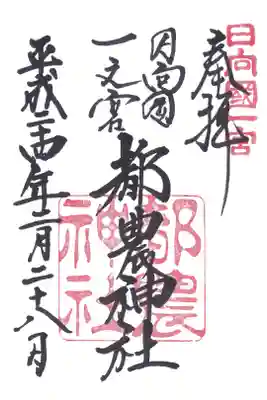 日向國一宮
奉拝
日向國
一之宮
都農神社
都農神社
平成二十四年二月二十八日